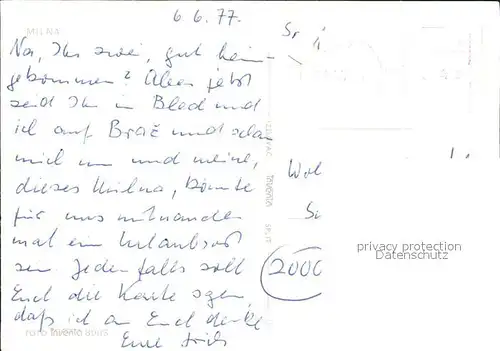 6. 6. 77.
MILNA
Na, Ihr zwei, gut heim-
gekommen? Aber jetzt
seid Ihr in Bled und
ich auf Brač und schau
mich um und meine,
dieses Milna, könnte
für uns miteinander
mal ein Urlaubsort
sein. Jedenfalls soll
Euch die Karte sagen,
daß ich an Euch denke
Eure
FOTO
Sr
Wol
Si
2000
SPLIT
privacy protection
Datenschutz